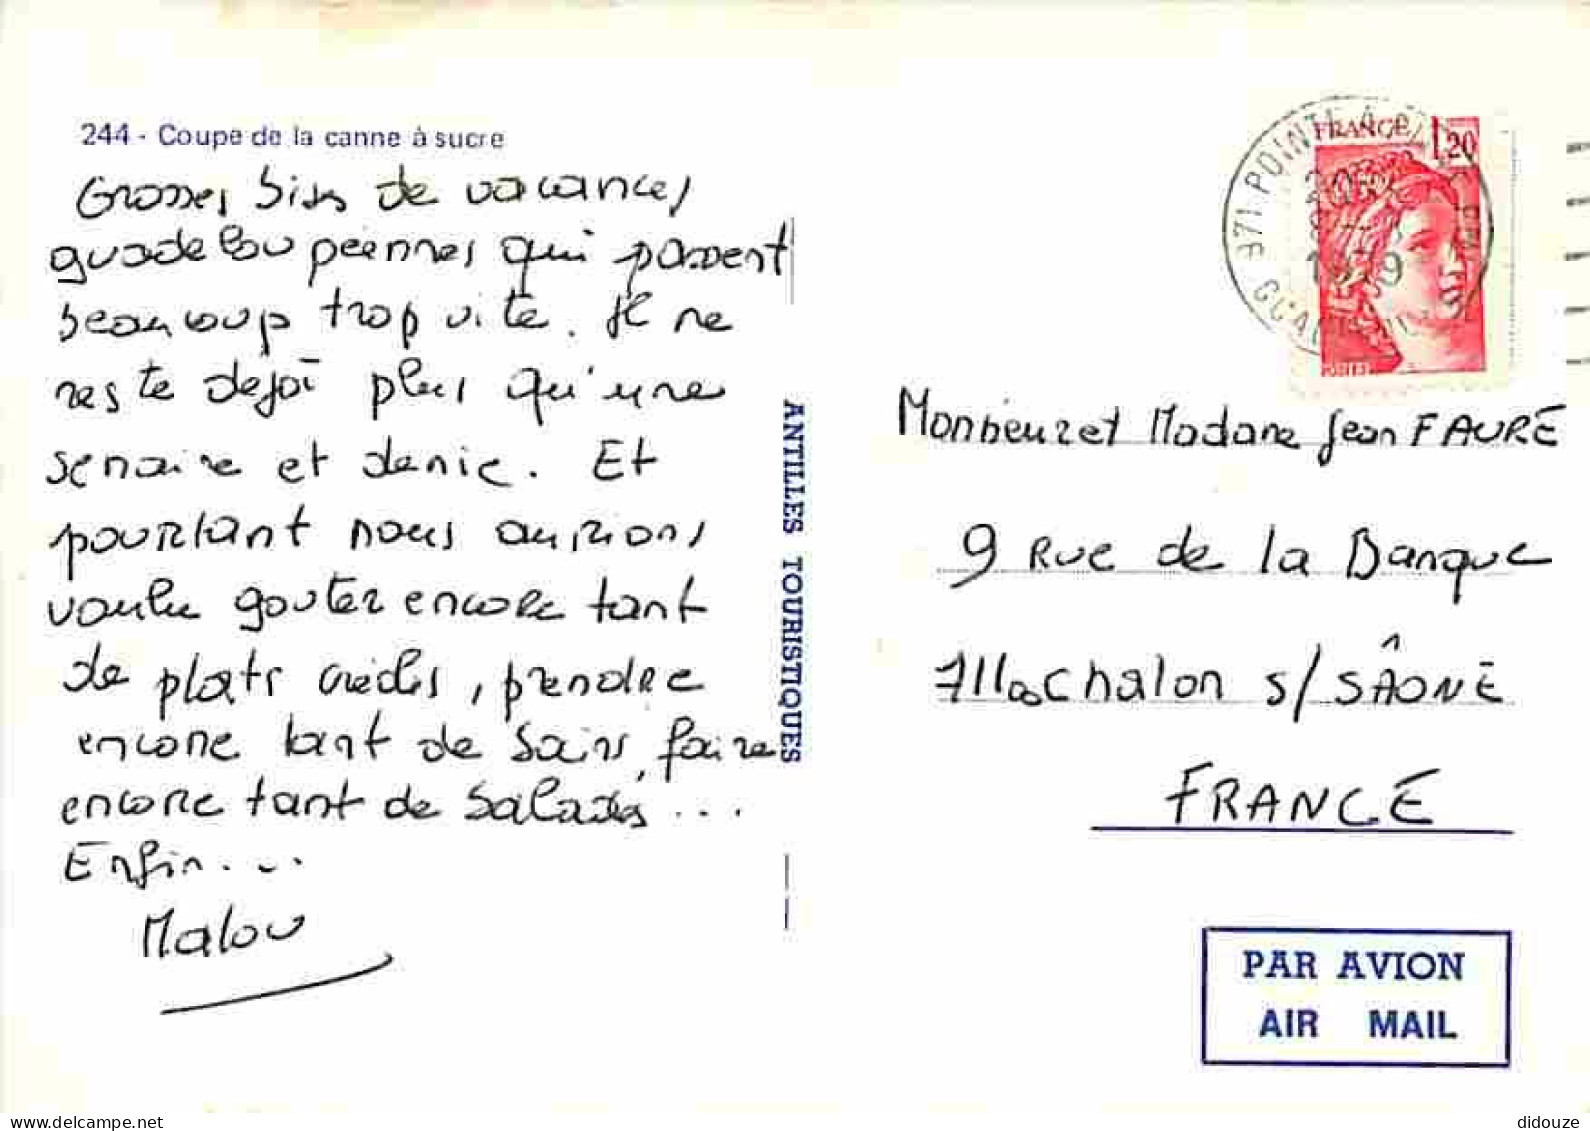 244 - Coupe de la canne à sucre
Grosses bises de vacances
guadeloupéennes qui passent
beaucoup trop vite. Il ne
reste dejà plus qu'une
semaine et demie. Et
pourtant nous aurions
voulu gouter encore tant
de plats créoles, prendre
encore tant de bains, faire
encore tant de balades...
Enfin...
Malou
ANTILLES TOURISTIQUES
FRANCE 1,20
971 POINTE A PITRE
1979
Monsieur et Madame Jean FAURE
9 Rue de la Banque
71100 Chalon s/ SÂONE
FRANCE
PAR AVION
AIR MAIL
www.delcampe.net
didouze